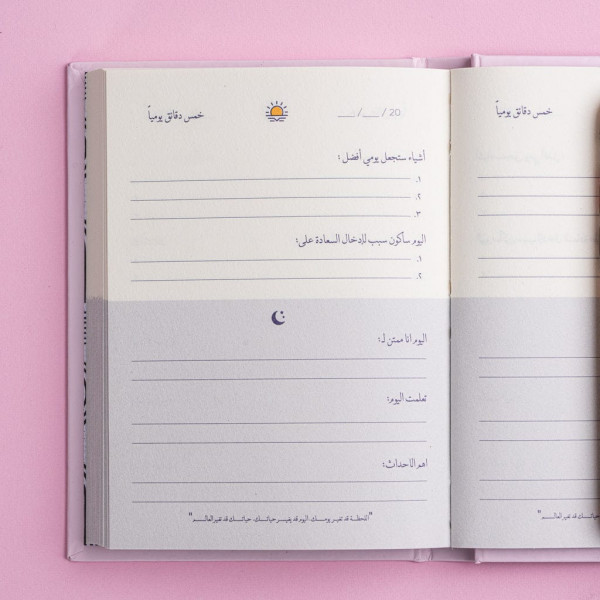 خمس دقائق يومياً
__/__/20
أشياء ستجعل يومي أفضل :
.١
.٢
.٣
اليوم سأكون سبب للإدخال السعادة على:
.١
.٢
اليوم انا ممتن لـ:
تعلمت اليوم:
اهم الاحداث:
"اللحظة قد تغير يومك، اليوم قد يغير حياتك، حياتك قد تغير العالم"
خمس دقائق يومياً
حياتك قد تغير العالم"